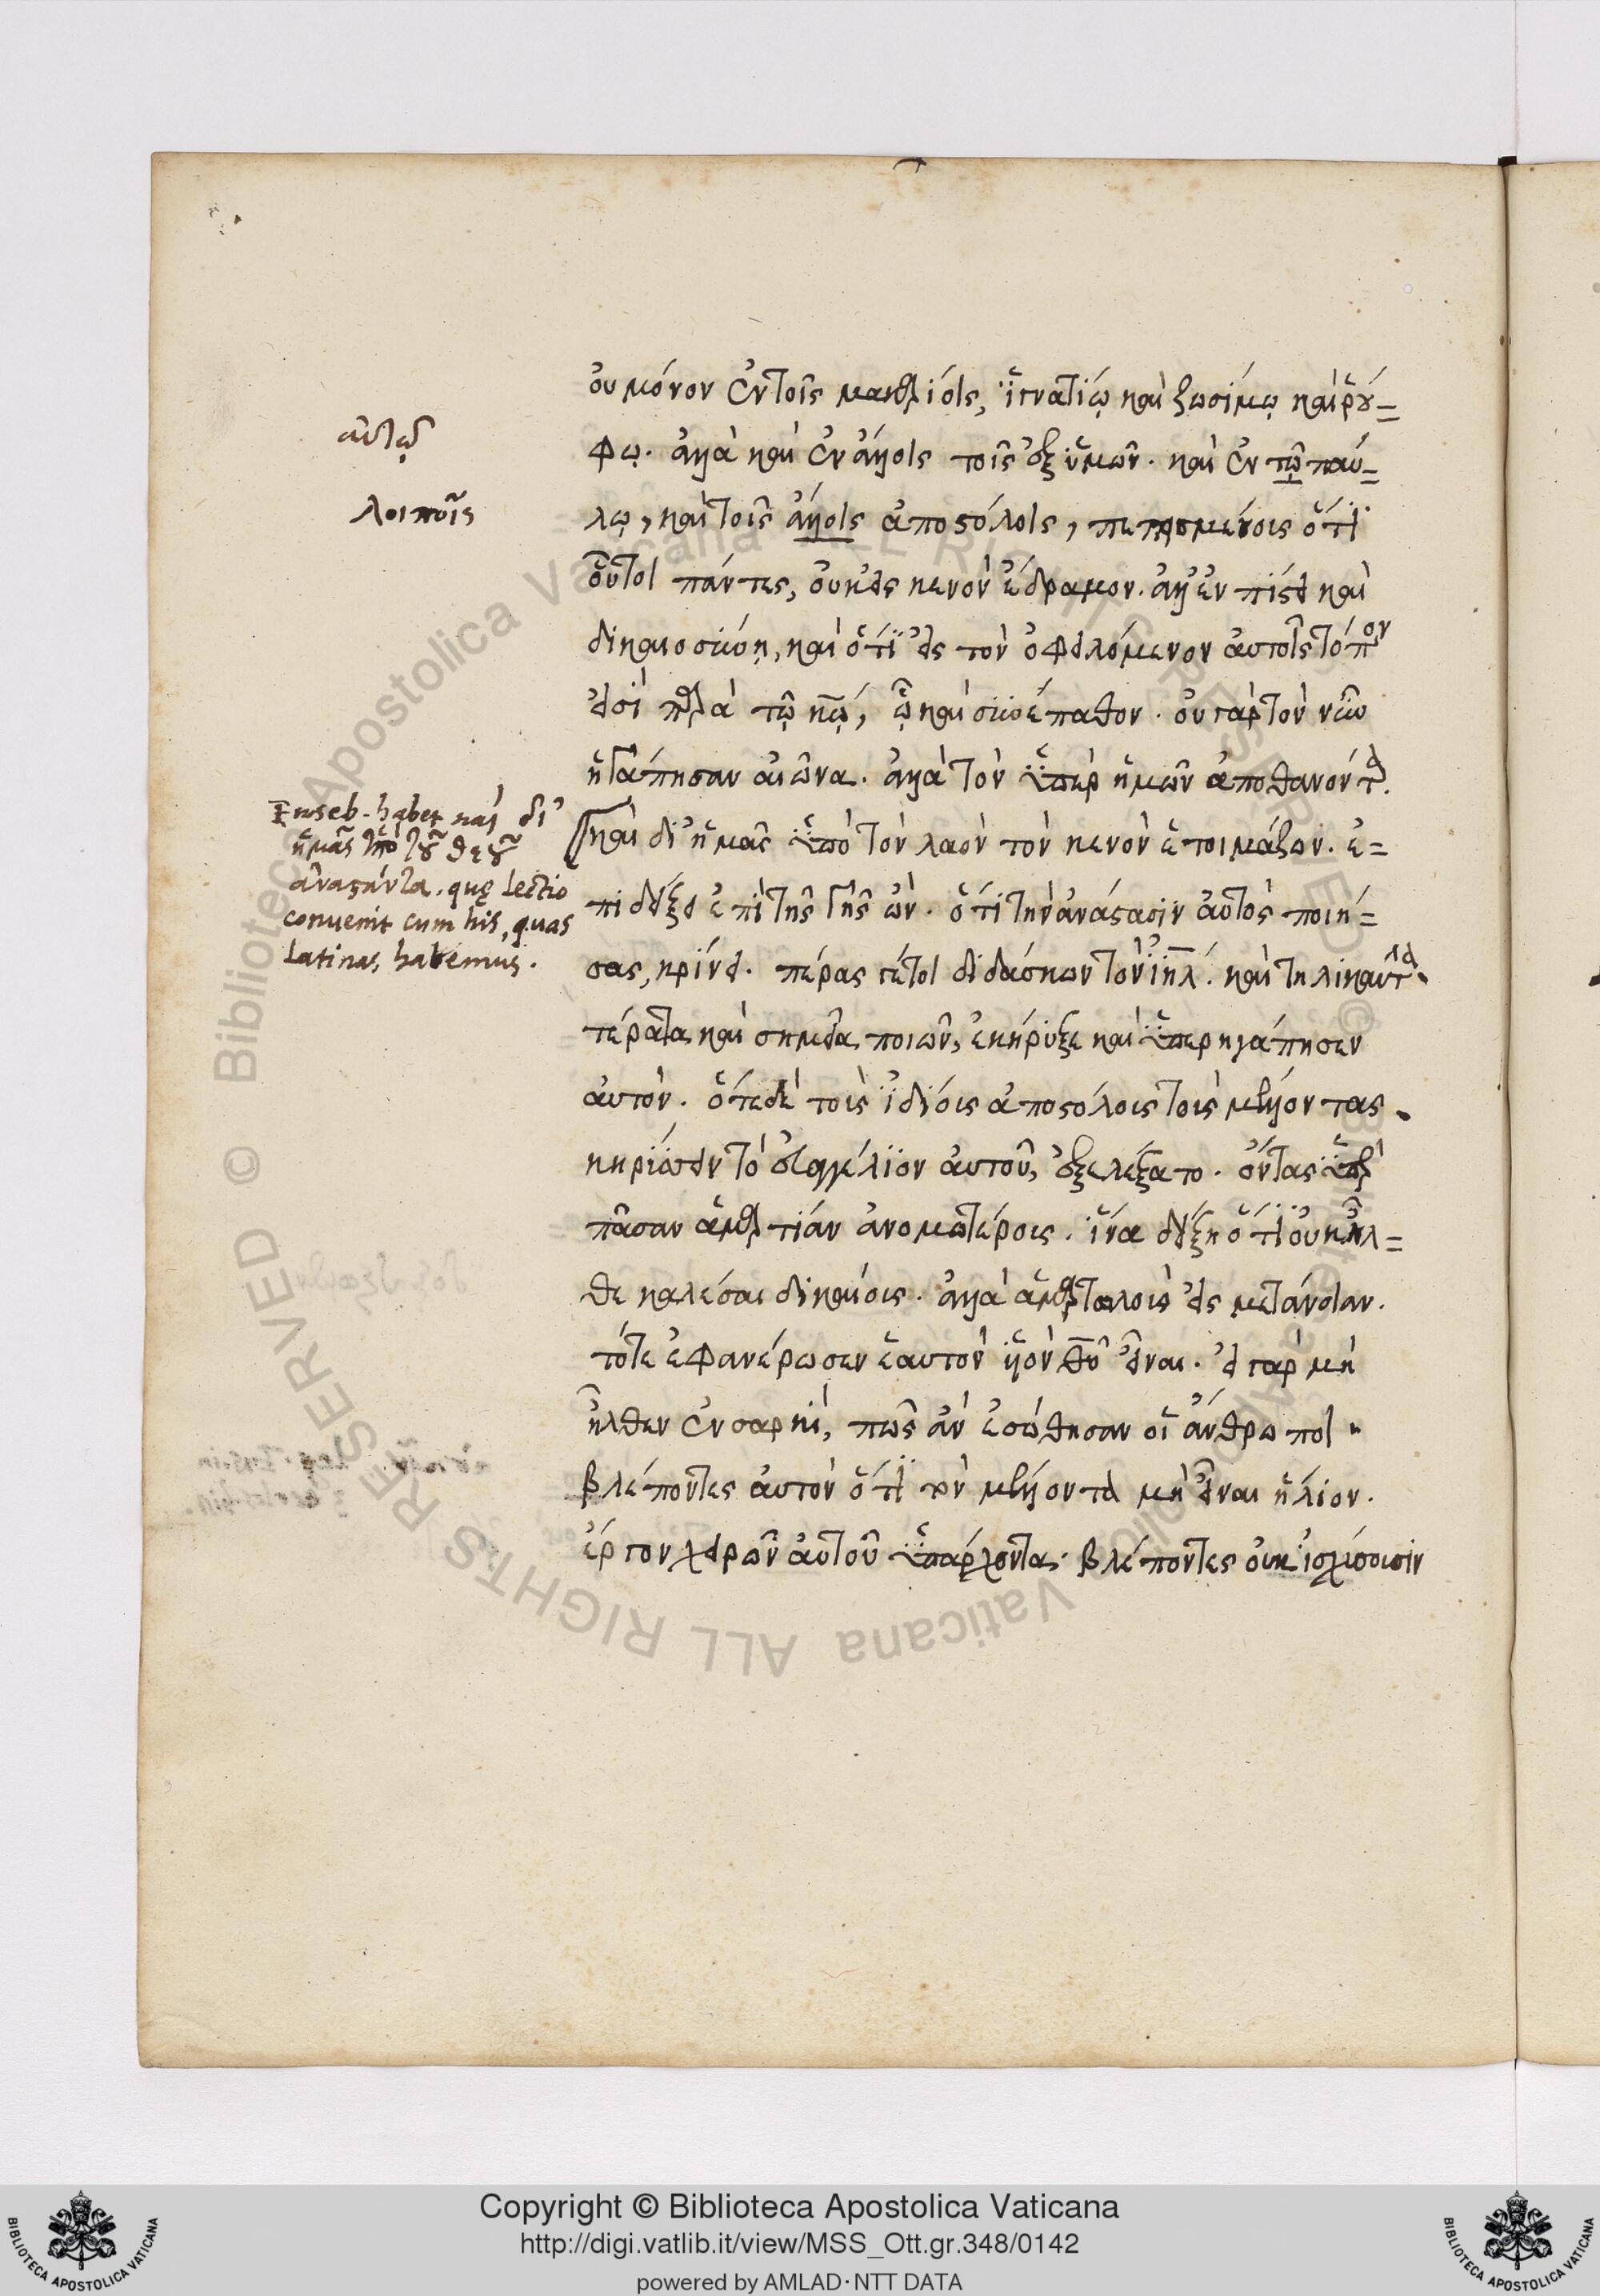 οὐ μόνον ἐν τοῖς μακαρίοις, ἰγνατίῳ καὶ ζωσίμῳ καὶ ῥού=
φω. ἀλλὰ καὶ ἐν ἄλλοις τοῖς ἐξ ὑμῶν. καὶ ἐν τῷ παύ=
λῳ, καὶ τοῖς ἄλλοις ἀποστόλοις, πεπεισμένοις ὅτι
οὗτοι πάντες, οὐκ εἰς κενὸν ἔδραμον. ἀλλ' ἐν πίστει καὶ
δικαιοσύνῃ, καὶ ὅτι εἰς τὸν ὀφειλόμενον αὐτοῖς τόπον
εἰσὶ παρὰ τῷ κῷ, ᾧ καὶ συνέπαθον. οὐ γὰρ τὸν νῦν
ἠγάπησαν αἰῶνα. ἀλλὰ τὸν ὑπὲρ ἡμῶν ἀποθανόντα.
καὶ δι' ἡμᾶς ὑπὸ τὸν λαὸν τὸν κενὸν ἑτοιμάζων. ἐ=
πιδείξει ἐπὶ τῆς γῆς ὢν. ὅτι τὴν ἀνάστασιν αὐτὸς ποιή=
σας, κρίνει. πέρας γέτοι διδάσκων τὸν ἰηλ. καὶ τηλικαῦτα
τέρατα καὶ σημεῖα ποιῶν, ἐκήρυξε καὶ ὑπερηγάπησεν
αὐτόν. ὅτε δὲ τοὺς ἰδίοις ἀποστόλοις τοὺς μέλλοντας
κηρύσσειν τὸ εὐαγγέλιον αὐτοῦ, ἐξελέξατο. ὄντας ὑπὲρ
πᾶσαν ἁμαρτίαν ἀνομωτέροις. ἵνα δείξῃ ὅτι οὐκ ἦλ=
θε καλέσαι δικαίοις. ἀλλὰ ἁμαρτωλοὺς εἰς μετάνοιαν.
τότε ἐφανέρωσεν ἑαυτὸν υἱὸν θῦ εἶναι. εἰ γὰρ μὴ
ἦλθεν ἐν σαρκί, πῶς ἂν ἐσώθησαν οἱ ἄνθρωποι
βλέποντες αὐτὸν ὅτι τὸν μέλλοντα μὴ εἶναι ἥλιον.
ἔργον χειρῶν αὐτοῦ ὑπάρχοντα. βλέποντες οὐκ ἰσχύσουσιν
αὐτῷ
λοιποῖς
Euseb. habet καὶ δι'
ἡμᾶς ὑπὸ τοῦ θεοῦ
ἀναστάντα. quę lectio
conuenit cum his, quas
latinas habemus.
Copyright © Biblioteca Apostolica Vaticana
http://digi.vatlib.it/view/MSS_Ott.gr.348/0142
powered by AMLAD·NTT DATA
BIBLIOTECA APOSTOLICA VATICANA
BIBLIOTECA APOSTOLICA VATICANA
© Biblioteca Apostolica Vaticana ALL RIGHTS RESERVED
© Biblioteca Apostolica Vaticana ALL RIGHTS RESERVED